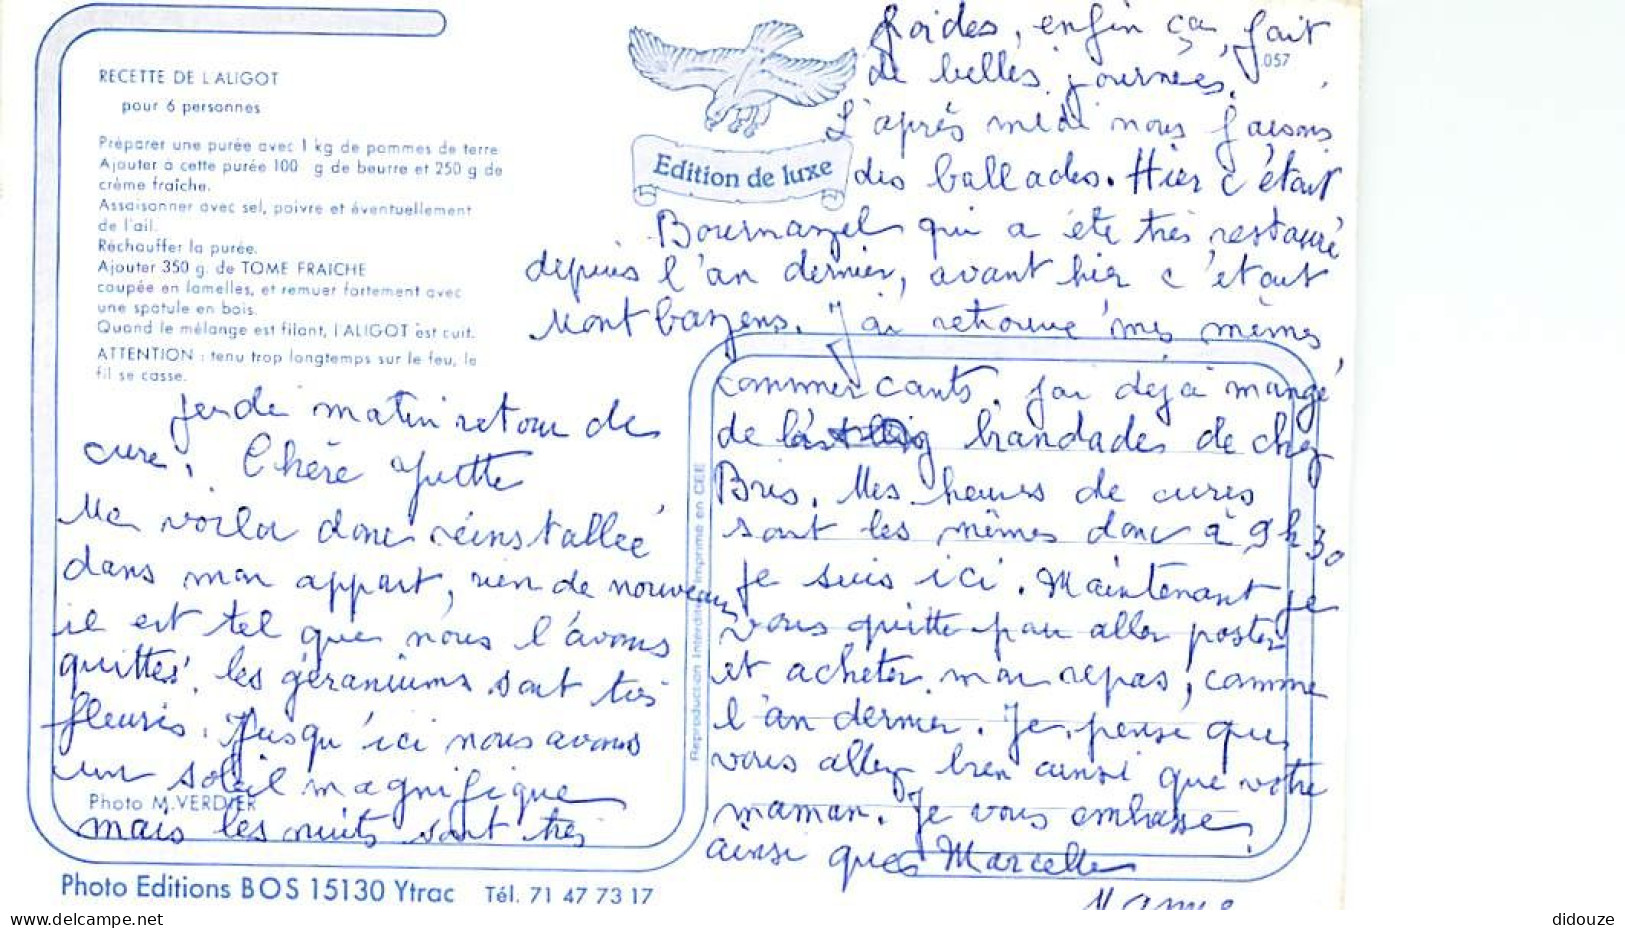 RECETTE DE L ALIGOT
pour 6 personnes
Préparer une purée avec 1 kg de pommes de terre
Ajouter à cette purée 100 g de beurre et 250 g de
crème fraîche.
Assaisonner avec sel, poivre et éventuellement
de l'ail.
Réchauffer la purée.
Ajouter 350 g. de TOME FRAICHE
coupée en lamelles, et remuer fortement avec
une spatule en bois.
Quand le mélange est filant, l ALIGOT est cuit.
ATTENTION : tenu trop longtemps sur le feu, le
fil se casse.
Edition de luxe
.057
jeudi matin retour de
cure. Chère Yvette
Me voilà donc réinstallée
dans mon appart, rien de nouveau
il est tel que nous l'avons
quitté, les géraniums sont très
fleuris. Jusqu'ici nous avons
un soleil magnifique
Photo M.VERDIER
mais les nuits sont très
froides, enfin ça fait
de belles journées.
L'après midi nous faisons
des ballades. Hier c'était
Bournazel qui a été très restauré
depuis l'an dernier, avant hier c'etait
Montbazens. J'ai retrouvé mes mêmes
commercants. j'ai dejà mangé
de brandades de chez
Bris. Mes heures de cures
sont les mêmes donc à 9h30
je suis ici. Maintenant je
vous quitte pour aller poster
et acheter mon repas, comme
l'an dernier. Je pense que
vous allez bien ainsi que votre
maman. Je vous embrasse
ainsi que Marcelle
Reproduction Interdite Imprimé en CEE
Photo Editions BOS 15130 Ytrac Tél. 71 47 73 17
delcampe.net
didouze